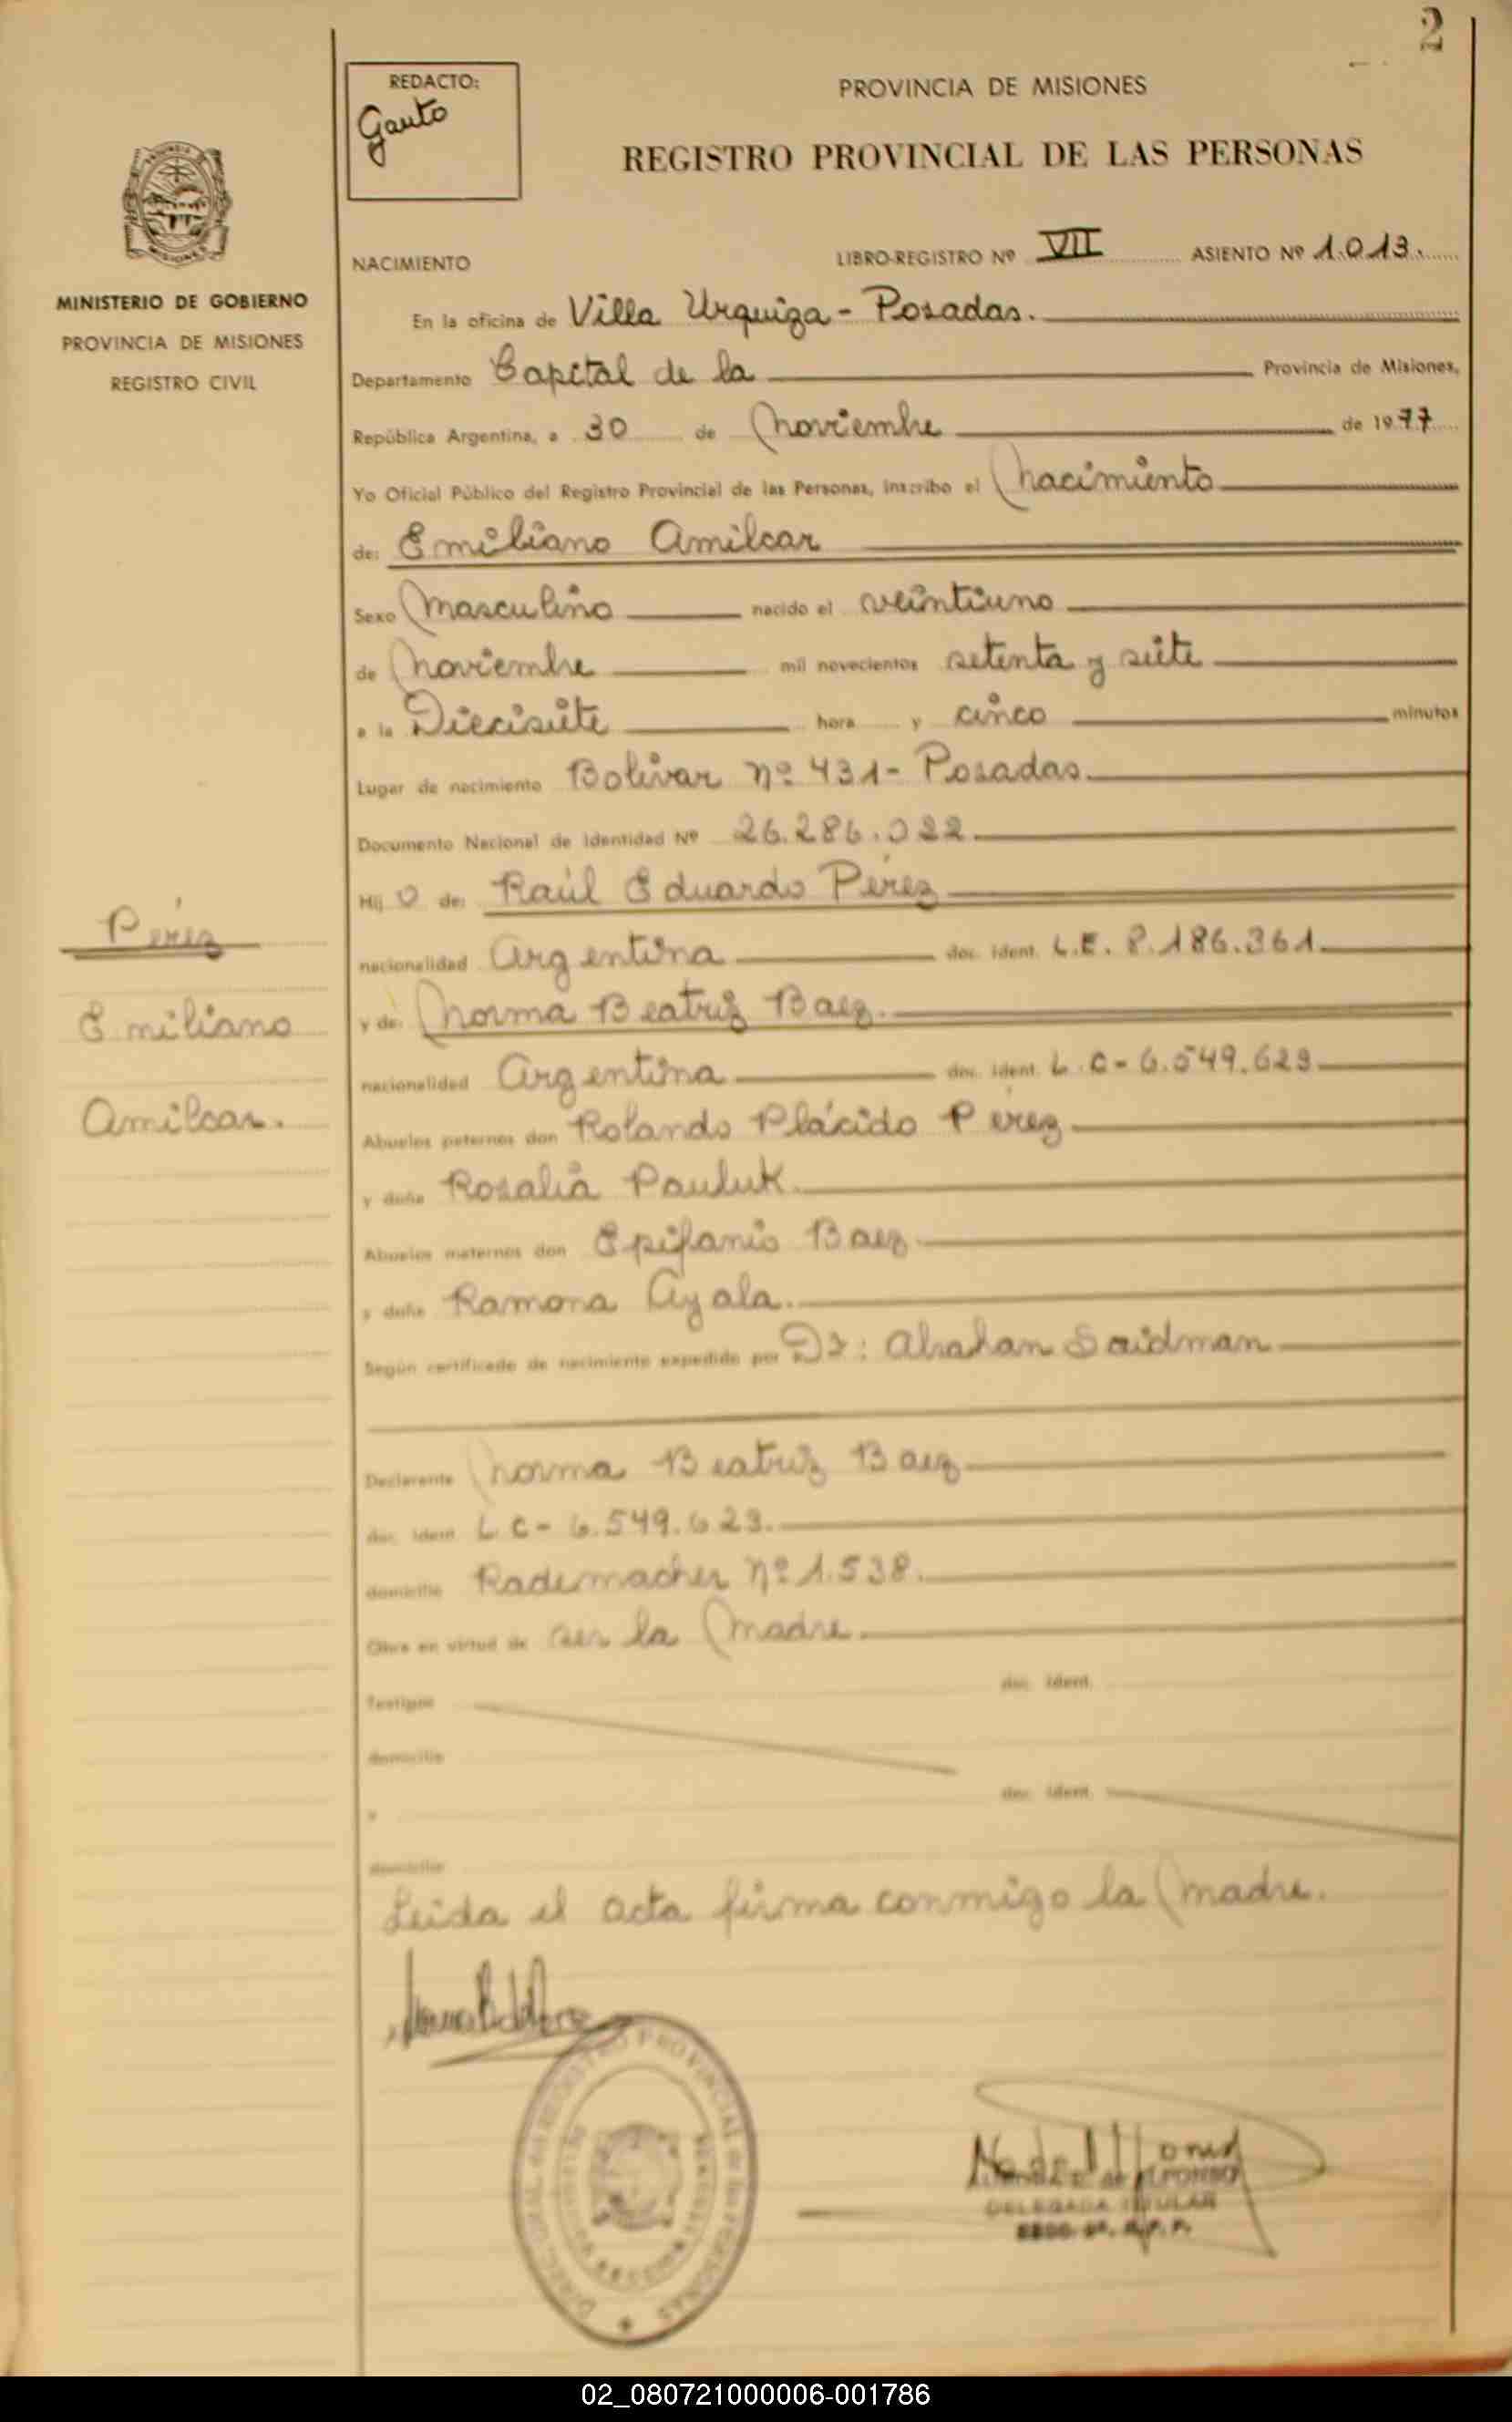 2
REDACTO:
Gauto
PROVINCIA DE MISIONES
REGISTRO PROVINCIAL DE LAS PERSONAS
MINISTERIO DE GOBIERNO
PROVINCIA DE MISIONES
REGISTRO CIVIL
NACIMIENTO
LIBRO-REGISTRO Nº VII ASIENTO Nº 1.013.
En la oficina de Villa Urquiza - Posadas.
Departamento Capital de la Provincia de Misiones,
República Argentina, a 30 de Noviembre de 1977
Yo Oficial Público del Registro Provincial de las Personas, inscribo el Nacimiento
de: Emiliano Amilcar
Sexo Masculino nacido el veintiuno
de Noviembre mil novecientos setenta y siete
a la Diecisiete hora y cinco minutos
Lugar de nacimiento Bolivar Nº 431- Posadas.
Documento Nacional de Identidad Nº 26.286.022
Hij o de: Raúl Eduardo Pérez
nacionalidad Argentina doc. ident. L.E. 8.186.361
y de: Norma Beatriz Baez.
nacionalidad Argentina doc. ident. L.C- 6.549.623
Abuelos paternos don Rolando Plácido Pérez
y doña Rosalia Pauluk.
Abuelos maternos don Epifanio Baez
y doña Ramona Ayala.
Según certificado de nacimiento expedido por Dr: Abrahan Saidman
Declarante Norma Beatriz Baez
doc. ident. L.C- 6.549.623.
domicilio Rademacher Nº 1.538.
Obra en virtud de ser la Madre.
Testigos doc. ident.
domicilio
y doc. ident.
domicilio
Leida el acta firma conmigo la Madre.
Pérez
Emiliano
Amilcar.
REGISTRO PROVINCIAL de las PERSONAS
de ALFONSO
DELEGADA TITULAR
02_080721000006-001786